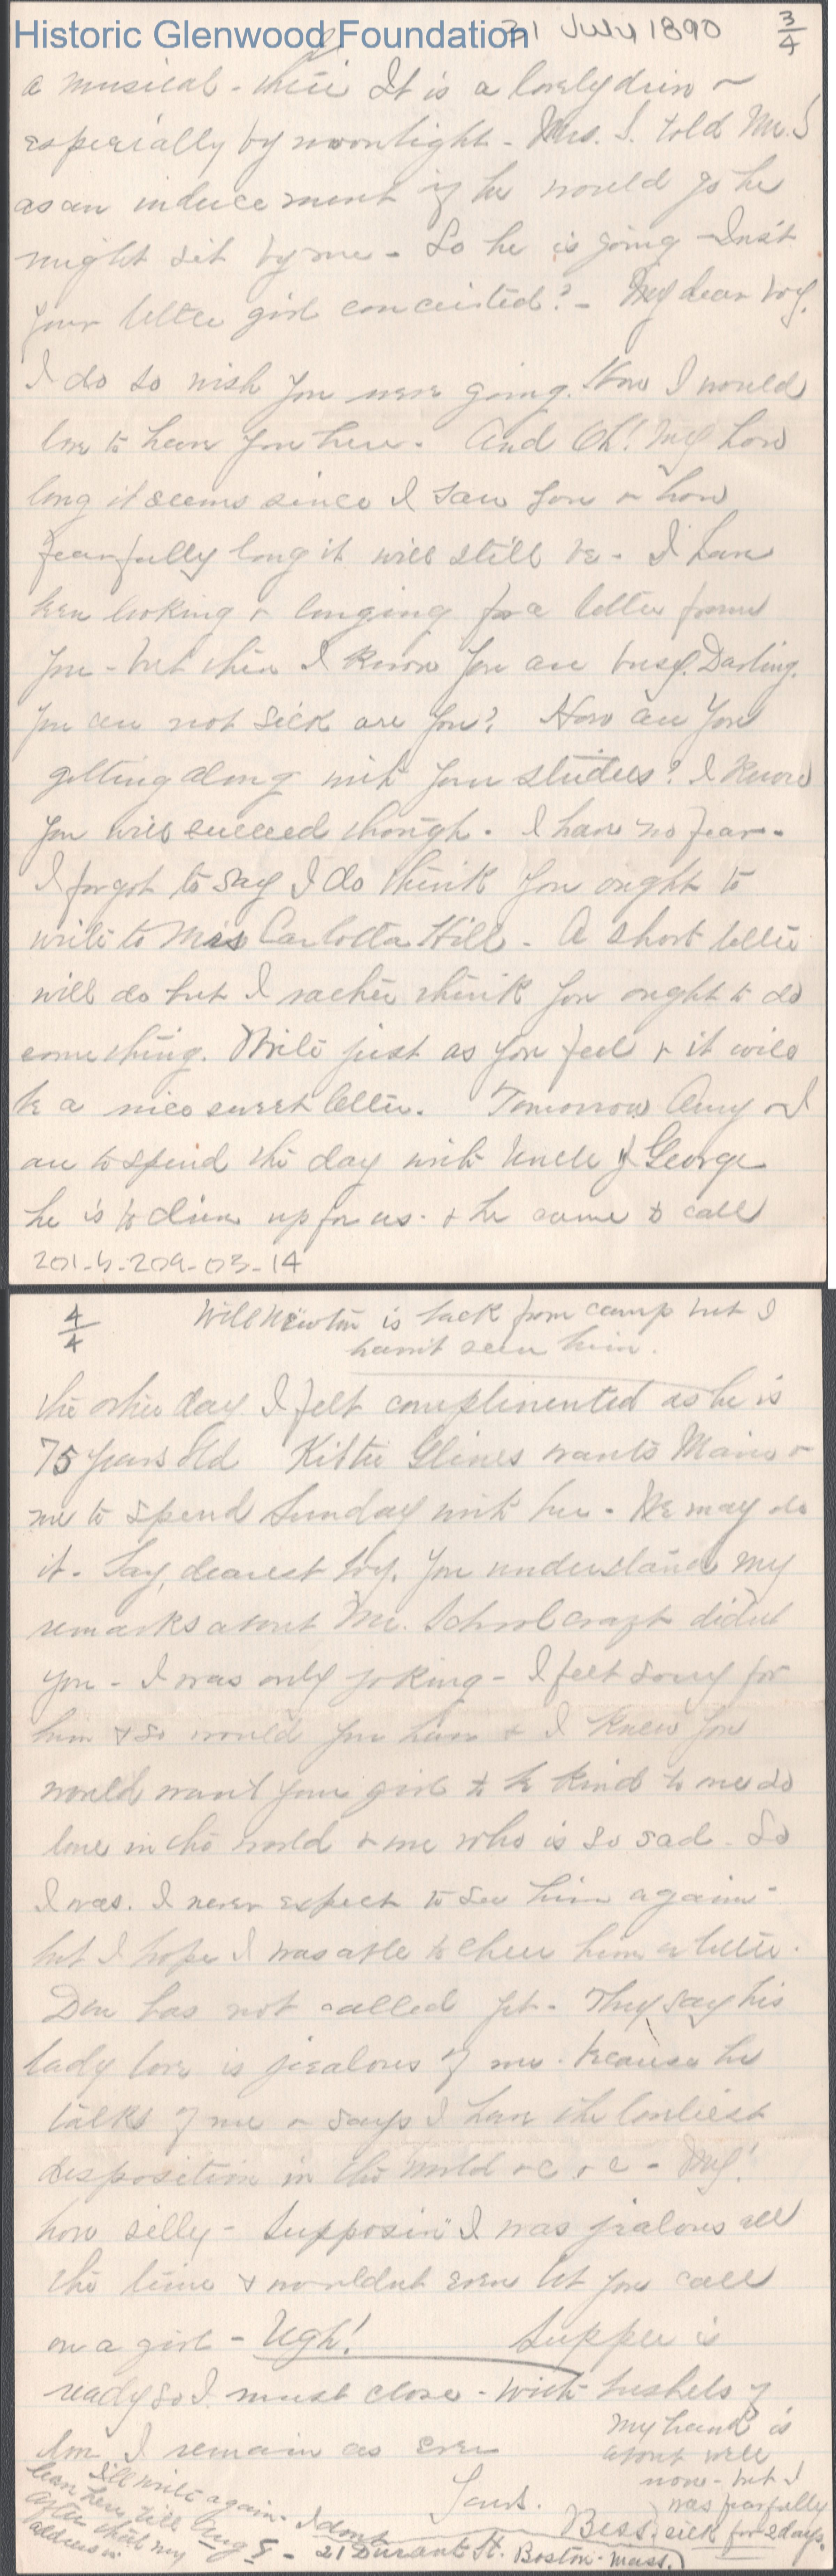 Historic Glenwood Foundation
21 July 1890
3/4
a musical - there It is a lovely drive ~
especially by moonlight - Mrs. S. told Mr. S
as an inducement if he would go he
might sit by me - So he is going - Isn't
your little girl conceited? - My dear boy.
I do so wish you were going. How I would
love to have you here. And Oh! My how
long it seems since I saw you & how
fearfully long it will still be - I have
been looking & longing for a letter from
you - but then I know you are busy. Darling.
you are not sick are you? How are you
getting along with your studies? I know
you will succeed though. I have no fear -
I forgot to say I do think you ought to
write to Mrs Carlotta Hill - A short letter
will do but I rather think you ought to do
something. Write just as you feel & it will
be a nice sweet letter. Tomorrow Amy & I
are to spend the day with Uncle George
he is to drive up for us - & he came to call
201-b-209-03-14
4/4
Will Newton is back from camp but I
havn't seen him.
the other day. I felt complimented as he is
75 years old Kittie Glines wants Mario &
me to spend Sunday with her - We may do
it - Say, dearest boy. you understand my
remarks about Mr. Schoolcraft didnt
you - I was only joking - I felt sorry for
him & so would you have & I knew you
would want your girl to be kind to one so
lone in the world & one who is so sad - So
I was. I never expect to see him again -
but I hope I was able to cheer him a little.
Dan has not called yet - They say his
lady love is jealous of me - because he
talks of me & says I have the loveliest
disposition in the world &c &c - My!
how silly - Supposin' I was jealous all
the time & wouldnt even let you call
on a girl - Ugh! Supper is
ready so I must close - With bushels of
love I remain as ever
Yours.
Bess.
My hand is
about well
now - but I
was fearfully
sick for 2 days.
I'll write again - I dont
leave here till Aug 5 -
after that my
address is
21 Durant St. Boston - Mass.